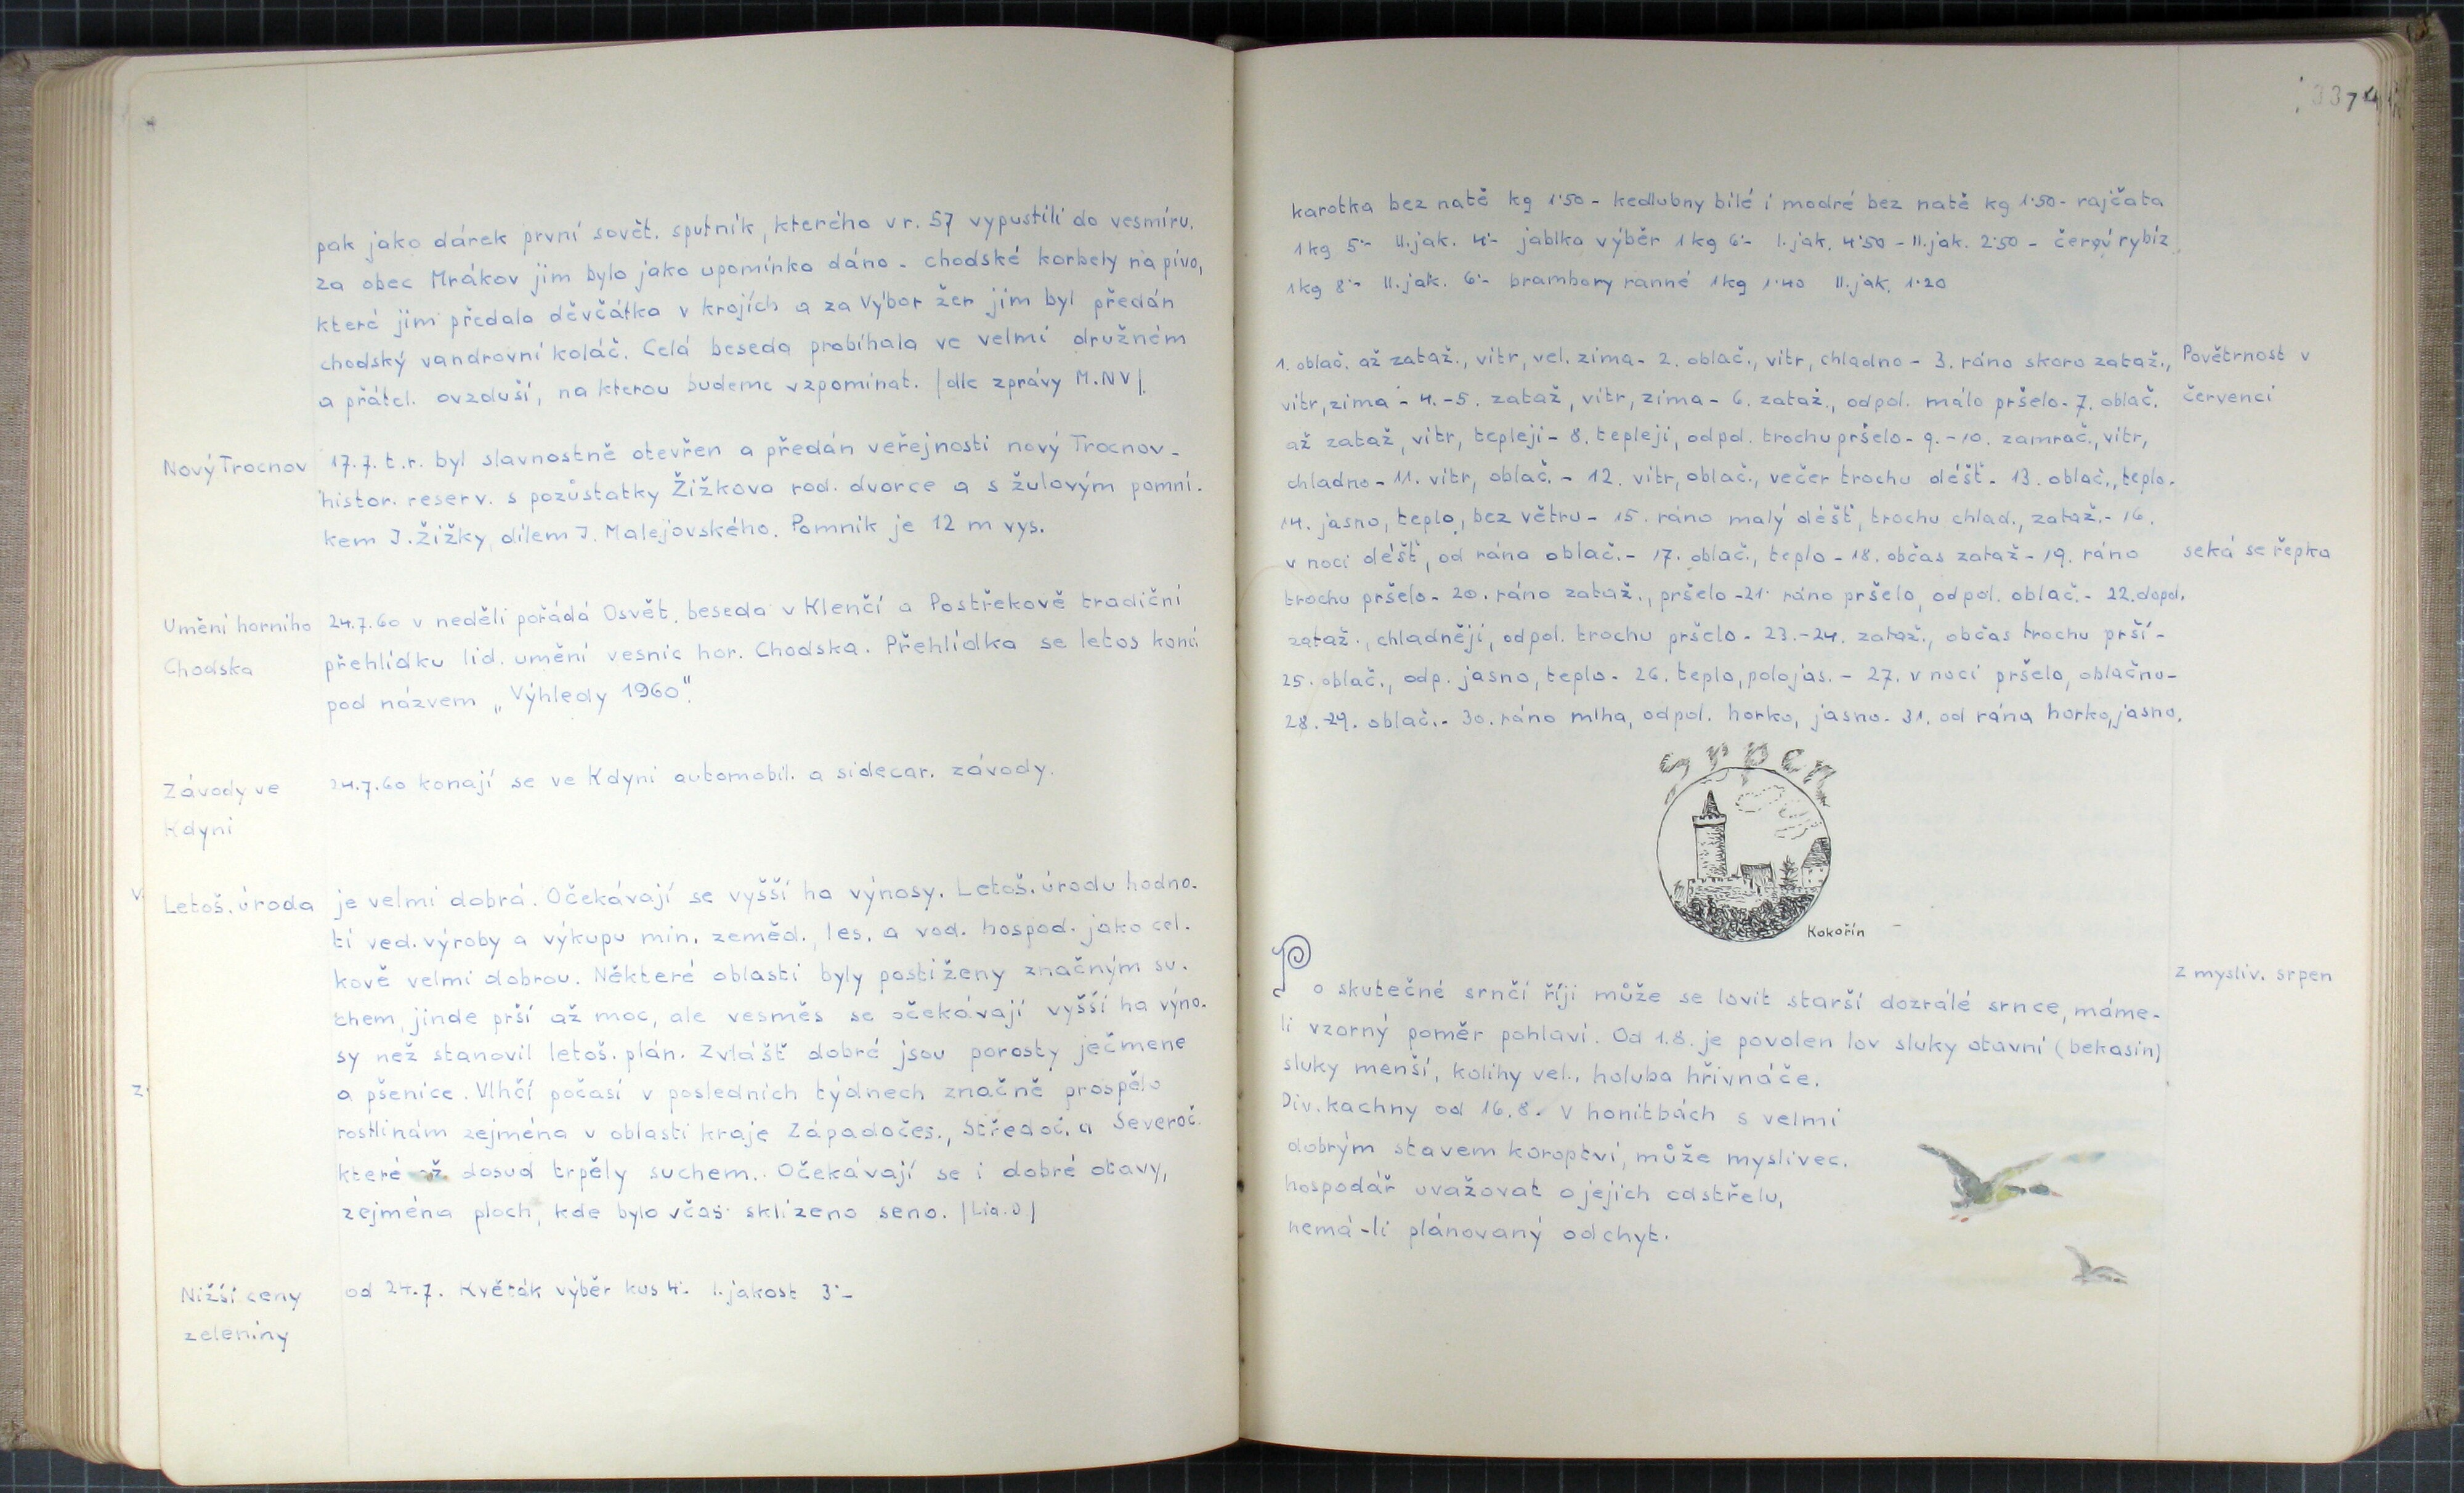 pak jako dárek první sovět. sputnik, kterého v r. 57 vypustili do vesmíru.
za obec Mrákov jim bylo jako upomínka dáno - chodské korbely na pivo,
které jim předala děvčátka v krojích a za Výbor žen jim byl předán
chodský vandrovní koláč. Celá beseda probíhala ve velmi družném
a přátel. ovzduší, na kterou budeme vzpomínat. /dle zprávy M.NV/.
Nový Trocnov
17.7. t.r. byl slavnostně otevřen a předán veřejnosti nový Trocnov -
histor. reserv. s pozůstatky Žižkova rod. dvorce a s žulovým pomní-
kem J. Žižky, dílem J. Malejovského. Pomník je 12 m vys.
Umění horního
Chodska
24.7.60 v neděli pořádá Osvět. beseda v Klenčí a Postřekově tradiční
přehlídku lid. umění vesnic hor. Chodska. Přehlídka se letos koná
pod názvem „Výhledy 1960".
Závody ve
Kdyni
24.7.60 konají se ve Kdyni automobil. a sidecar. závody.
Letoš. úroda
je velmi dobrá. Očekávají se vyšší ha výnosy. Letoš. úrodu hodno-
tí ved. výroby a výkupu min. zeměd., les. a vod. hospod. jako cel-
kově velmi dobrou. Některé oblasti byly postiženy značným su-
chem, jinde prší až moc, ale vesměs se očekávají vyšší ha výno-
sy než stanovil letoš. plán. Zvlášť dobré jsou porosty ječmene
a pšenice. Vlhčí počasí v posledních týdnech značně prospělo
rostlinám zejména v oblasti kraje Západočes., Středoč. a Severoč.
které až dosud trpěly suchem. Očekávají se i dobré otavy,
zejména ploch, kde bylo včas sklizeno seno. /Lid.D/
Nižší ceny
zeleniny
od 24.7. Květák výběr kus 4·- I. jakost 3·-
3374
karotka bez natě kg 1·50 - kedlubny bílé i modré bez natě kg 1·50 - rajčata
1 kg 5·- II. jak. 4·- jablka výběr 1 kg 6·- I. jak. 4·50 - II. jak. 2·50 - červý rybíz
1 kg 8·- II. jak. 6·- brambory ranné 1 kg 1·40 II. jak. 1·20
Povětrnost v
červenci
1. oblač. až zataž., vítr, vel. zima - 2. oblač., vítr, chladno - 3. ráno skoro zataž.,
vítr, zima - 4.-5. zataž, vítr, zima - 6. zataž., odpol. málo pršelo - 7. oblač.
až zataž, vítr, tepleji - 8. tepleji, odpol. trochu pršelo - 9.-10. zamrač., vítr,
chladno - 11. vítr, oblač. - 12. vítr, oblač., večer trochu déšť - 13. oblač., teplo -
14. jasno, teplo, bez větru - 15. ráno malý déšť, trochu chlad., zataž. - 16.
v noci déšť, od rána oblač. - 17. oblač., teplo - 18. občas zataž - 19. ráno
seká se řepka
trochu pršelo - 20. ráno zataž., pršelo - 21. ráno pršelo, odpol. oblač. - 22. dopol.
zataž., chladněji, odpol. trochu pršelo - 23.-24. zataž., občas trochu prší -
25. oblač., odp. jasno, teplo - 26. teplo, polojas. - 27. v noci pršelo, oblačno -
28.-29. oblač. - 30. ráno mlha, odpol. horko, jasno - 31. od rána horko, jasno.
Srpen
Kokořín
z mysliv. srpen
Po skutečné srnčí říji může se lovit starší dozrálé srnce, máme-
li vzorný poměr pohlaví. Od 1.8. je povolen lov sluky otavní (bekasin)
sluky menší, kolihy vel., holuba hřivnáče.
Div. kachny od 16.8. V honitbách s velmi
dobrým stavem koroptví, může myslivec.
hospodář uvažovat o jejich odstřelu,
nemá-li plánovaný odchyt.